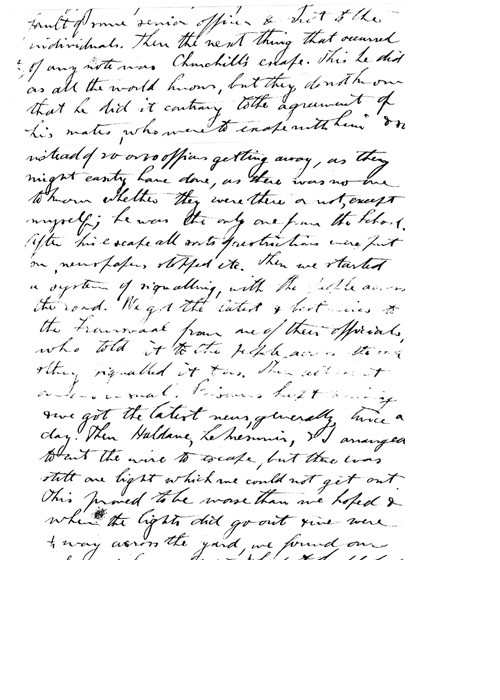 fault of some senior officer & not of the
individuals. Then the next thing that occurred
of any note was Churchill's escape. This he did
as all the world knows, but they do not know
that he did it contrary to the agreement of
his mates, who were to escape with him & so
instead of 20 or 30 officers getting away, as they
might easily have done, as there was no one
to know whether they were there or not, except
myself; he was the only one from the School.
After his escape all sorts of restrictions were put
on, newspapers stopped etc. Then we started
a system of signalling, with the people across
the road. We got the latest & best news to
the Transvaal from one of their officials,
who told it to the people across the road
& they signalled it to us. Then
Prisoners kept
& we got the latest news, generally twice a
day. Then Haldane, Le Mesurier, & I arranged
to cut the wire to escape, but there was
still one light which we could not get out.
This proved to be worse than we hoped &
when the lights did go out & we were
½ way across the yard, we found our